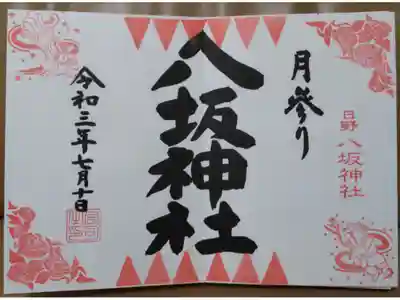 月参り
日野 八坂神社
八坂神社
令和三年七月十日